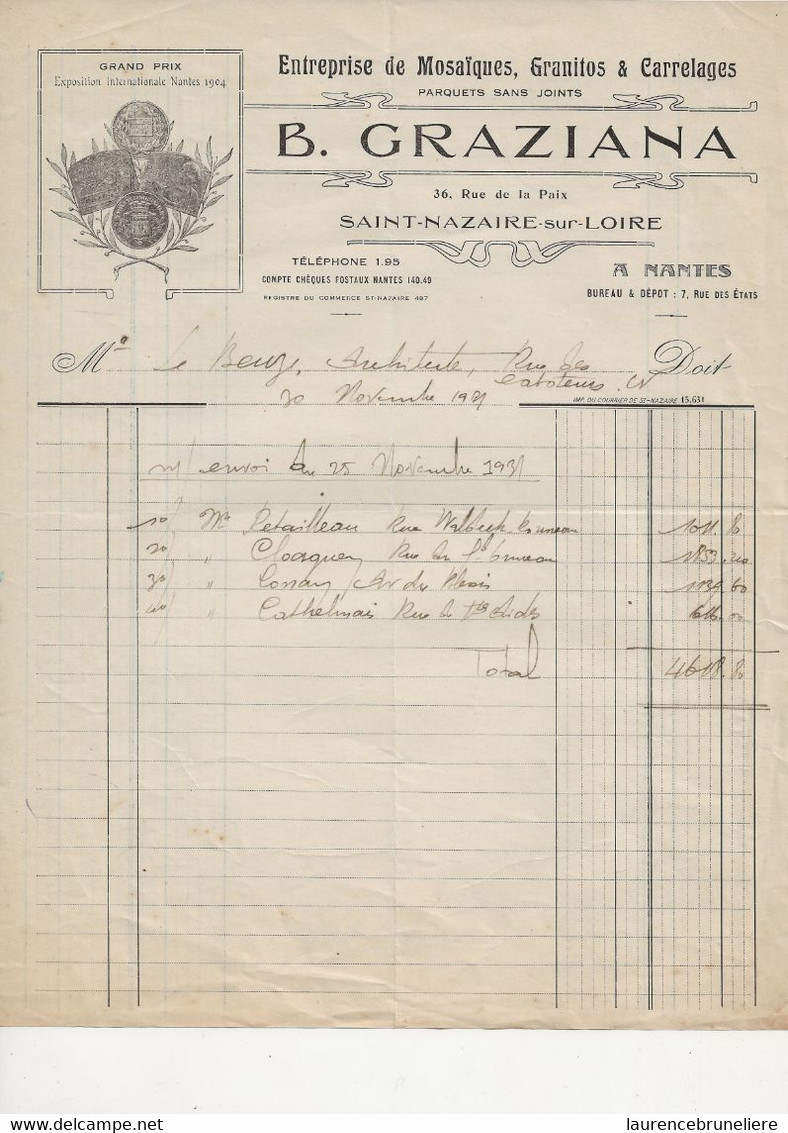 GRAND PRIX
Exposition Internationale Nantes 1904
Entreprise de Mosaïques, Granitos & Carrelages
PARQUETS SANS JOINTS
B. GRAZIANA
36, Rue de la Paix
SAINT-NAZAIRE-sur-LOIRE
TÉLÉPHONE 1.95
COMPTE CHÈQUES POSTAUX NANTES 140.49
REGISTRE DU COMMERCE ST-NAZAIRE 487
A NANTES
BUREAU & DÉPOT : 7, RUE DES ÉTATS
Mr Le Architecte, Rue des Doit
30 Novembre 1931
IMP. DU COURRIER DE ST-NAZAIRE 15.631
envoi du 25 Novembre 1931
10/ Mr Retailleau Rue 1011.80
20/ " Rue 1853.20
30/ " Av du 1139.60
40/ " Cathelinais Rue
Total 4618.80
laurencebruneliere